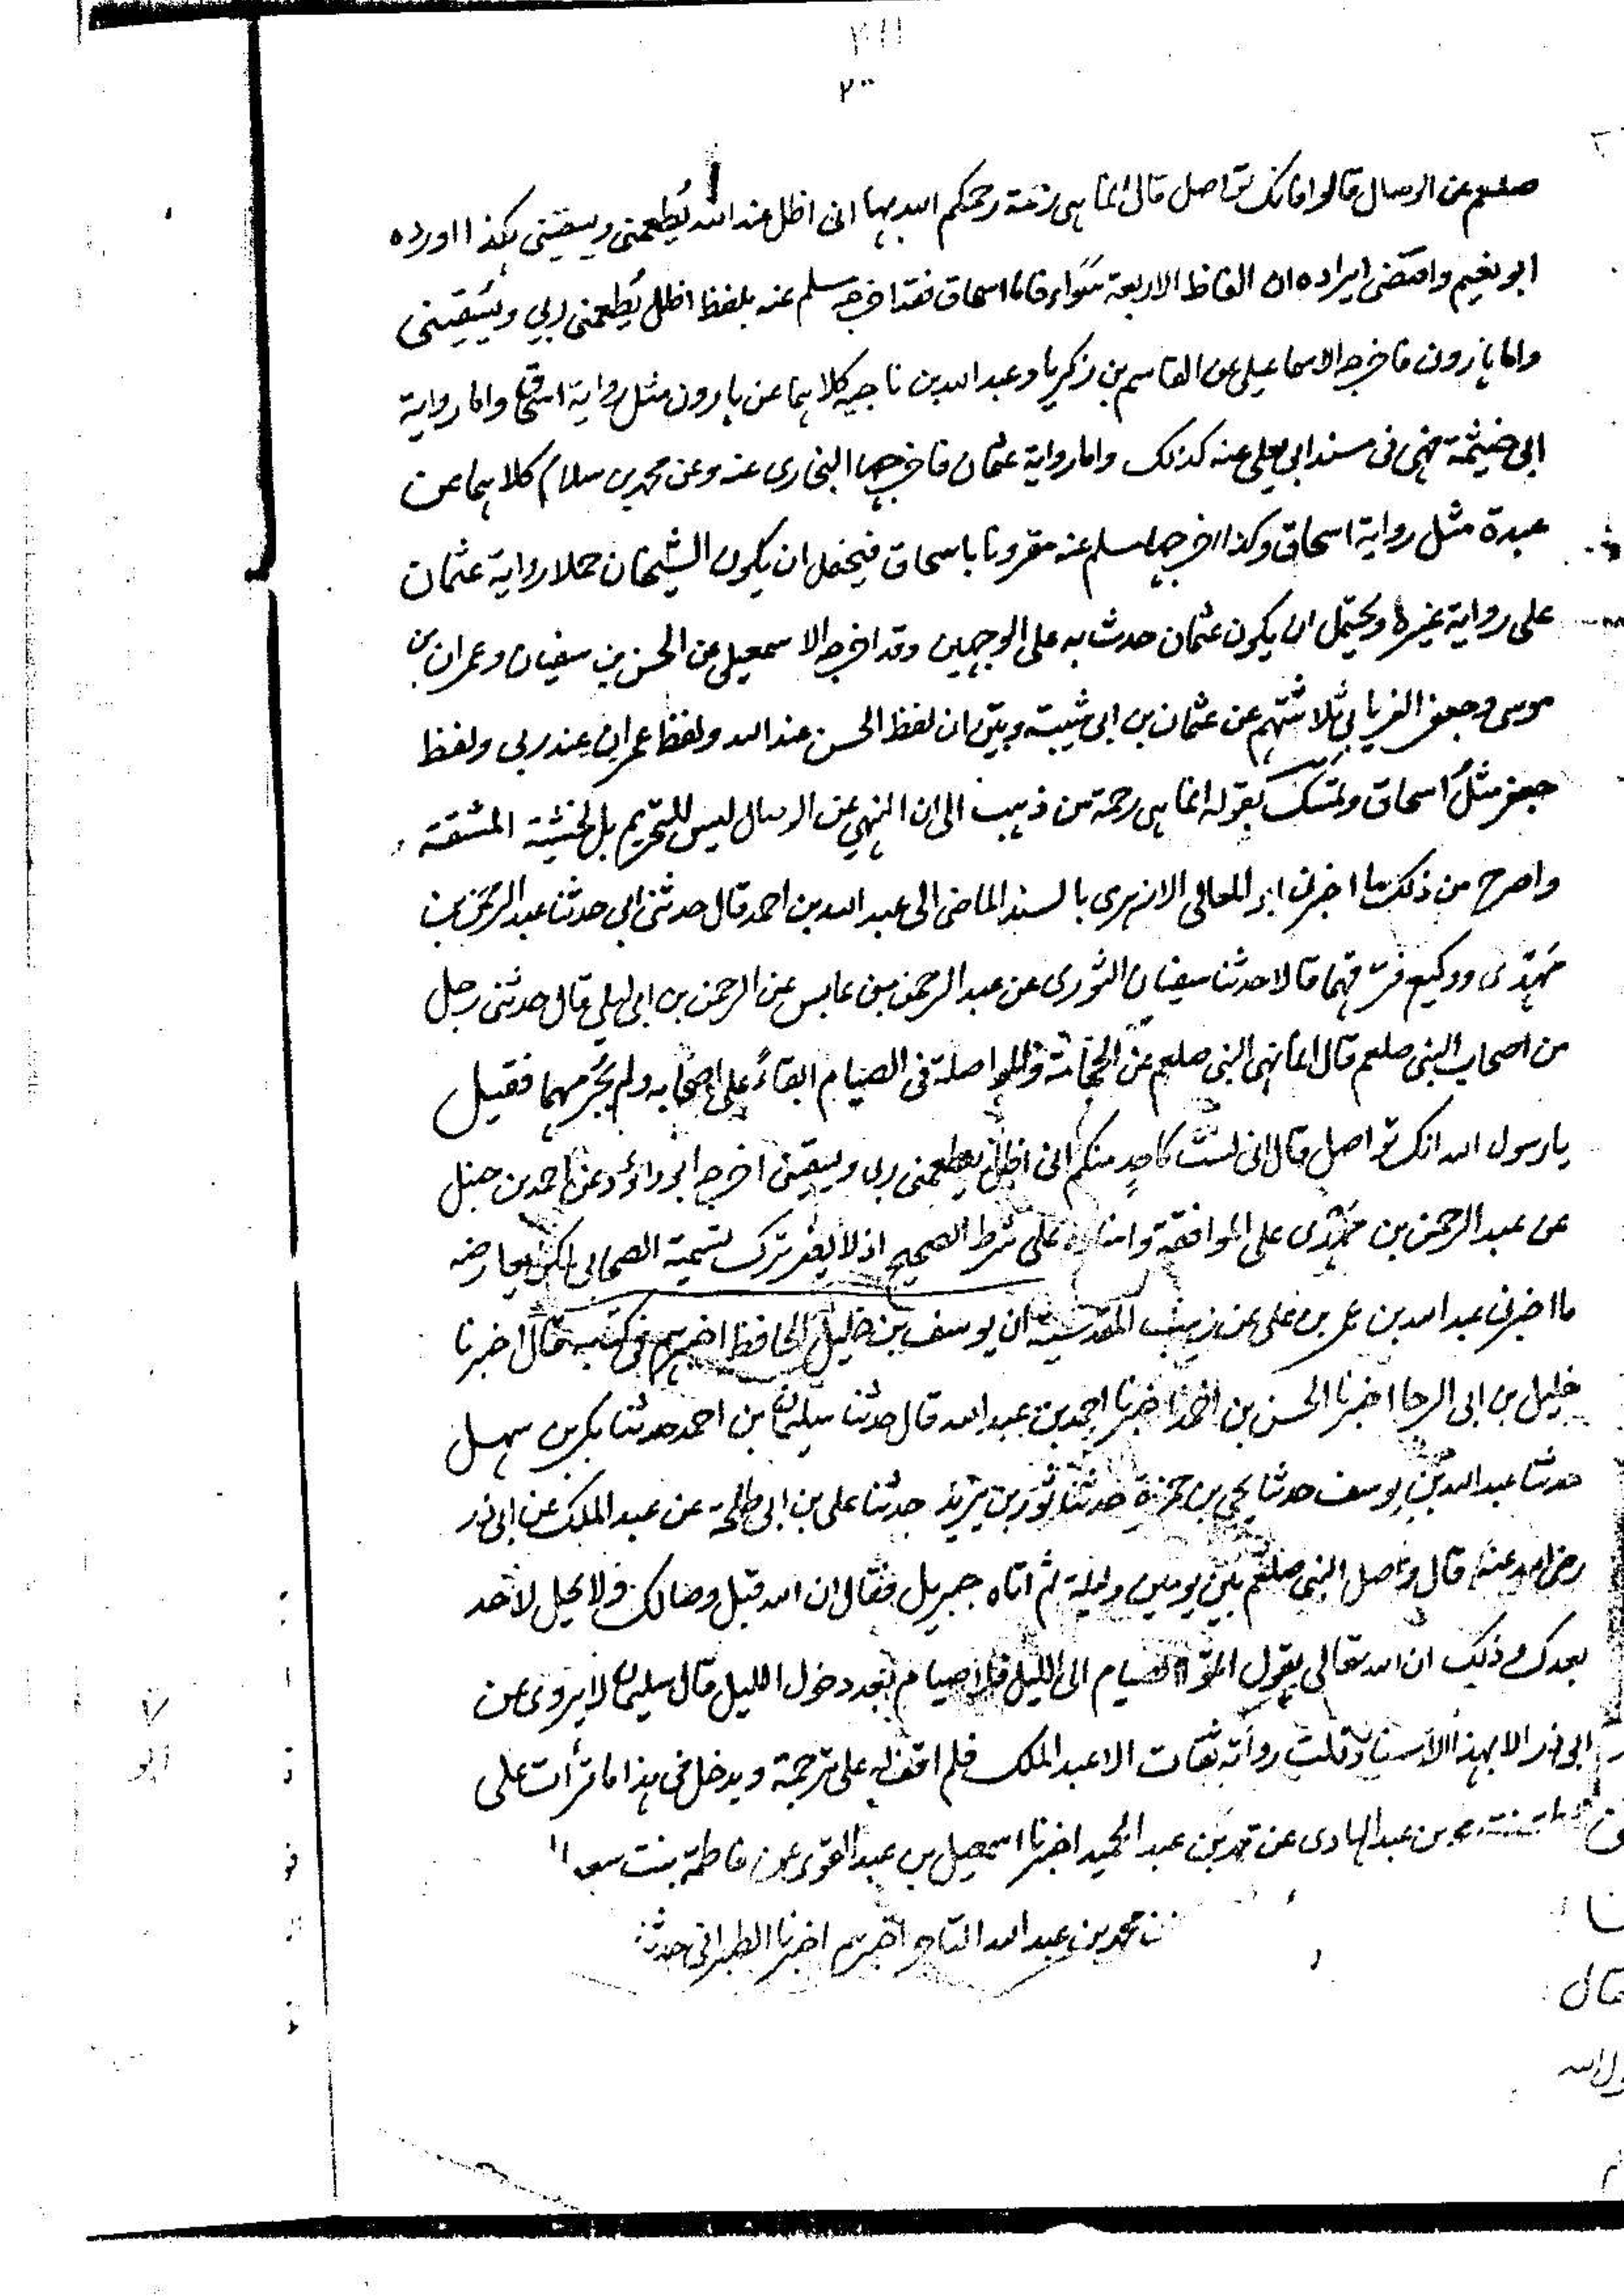 ٢١١
٢٠٠
صلعم عن الوصال قالوا فانك تواصل قال انما هى رحمة رحمكم الله بها انى اظل عند الله يُطعمنى ويسقينى هكذا اورده
ابو نعيم واقتضى ايراده ان الفاظ الاربعة سَوَاء فاما اسحاق فقد اخرجه مسلم عنه بلفظ اظل يُطعمنى ربى ويَسْقينى
واما هارون فاخرجه الاسماعيلى عن القاسم بن زكريا وعبد الله بن ناجيه كلاهما عن هارون مثل رواية اسحاق واما رواية
ابى خيثمة فهى فى مسند ابى يعلى عنه كذلك واما رواية عثمان فاخرجها البخارى عنه وعن محمد بن سلام كلاهما عن
عبدة مثل رواية اسحاق وكذا اخرجها مسلم عنه مقرونا باسحاق فيحتمل ان يكون الشيخان حملا رواية عثمان
على رواية غيره ويحتمل ان يكون عثمان حدث به على الوجهين وقد اخرجه الاسمعيلى عن الحسن بن سفيان وعمران بن
موسى وجعفر الفريابى ثلاثتهم عن عثمان بن ابى شيبة وبيّن ان لفظ الحسن عند الله ولفظ عمران عند ربى ولفظ
جعفر مثلُ اسحاق وتمسّك بقوله انما هى رحمة من ذهب الى ان النهى عن الوصال ليس للتحريم بل لخشية المشقة
واصرح من ذلك ما اخبرنى ابو المعالى الازهرى بالسند الماضى الى عبد الله بن احمد قال حدثنى ابى حدثنا عبد الرحمن بن
مَهدى ووكيع فرّقهما قالا حدثنا سفيان الثورى عن عبد الرحمن بن عابس عن الرحمن بن ابى ليلى قال حدثنى رجل
من اصحاب النبى صلعم قال انما نهى النبى صلعم عن الحجَامة والمواصلة فى الصيام ابقاءً على اصحابه ولم يُحرّمهما فقيل
يا رسول الله انك تواصل قال انى لست كاحدٍ منكم انى اظل يطعمنى ربى ويسقينى اخرجه ابو داؤد عن احمد بن حنبل
عن عبد الرحمن بن مَهْدى على الموافقة واسناده على شرط الصحيح اذ لا يضر ترك تسمية الصحابى لكن يعارضه
ما اخبرنى عبد الله بن عمر بن على عن زينب المقدسية ان يوسف بن خليل الحافظ اخبرهم فى كتابه قال اخبرنا
خليل بن ابى الرجا اخبرنا الحسن بن احمد اخبرنا احمد بن عبد الله قال حدثنا سليمان بن احمد حدثنا بكر بن سهل
حدثنا عبد الله بن يوسف حدثنا يحيى بن حمزة حدثنا ثور بن يزيد حدثنا على بن ابى طلحة عن عبد الملك عن ابى ذر
رضى الله عنه قال واصل النبى صلعم بين يومين وليلة ثم اتاه جبريل فقال ان الله قبل وصالك ولا يحل لاحد
بعدك وذلك ان الله تعالى يقول اتموا الصيام الى الليل فلا صيام بعد دخول الليل قال سليمان لا يروى عن
ابى ذر الا بهذا الاسناد قلت رواته ثقات الا عبد الملك فلم اقف له على ترجمة ويدخل فى هذا ما قرأت على
بن عبد الهادى عن محمد بن عبد الحميد اخبرنا اسمعيل بن عبد القوى عن فاطمة بنت سعد
محمد بن عبد الله التاجر اخبرهم اخبرنا الطبرانى حدثنا